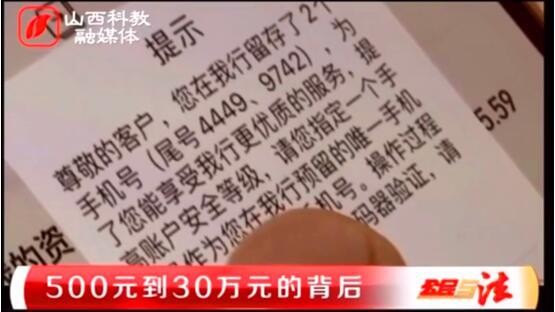 山西科教
融媒体
提示
尊敬的客户，您在我行留存了2个
手机号（尾号4449、9742），为
了您能享受我行更优质的服务，提
高账户安全等级，请您指定一个手
作为您在我行预留的唯一手机
机号。操作过程
码器验证，请
5.59
的资
500元到30万元的背后
公民与法